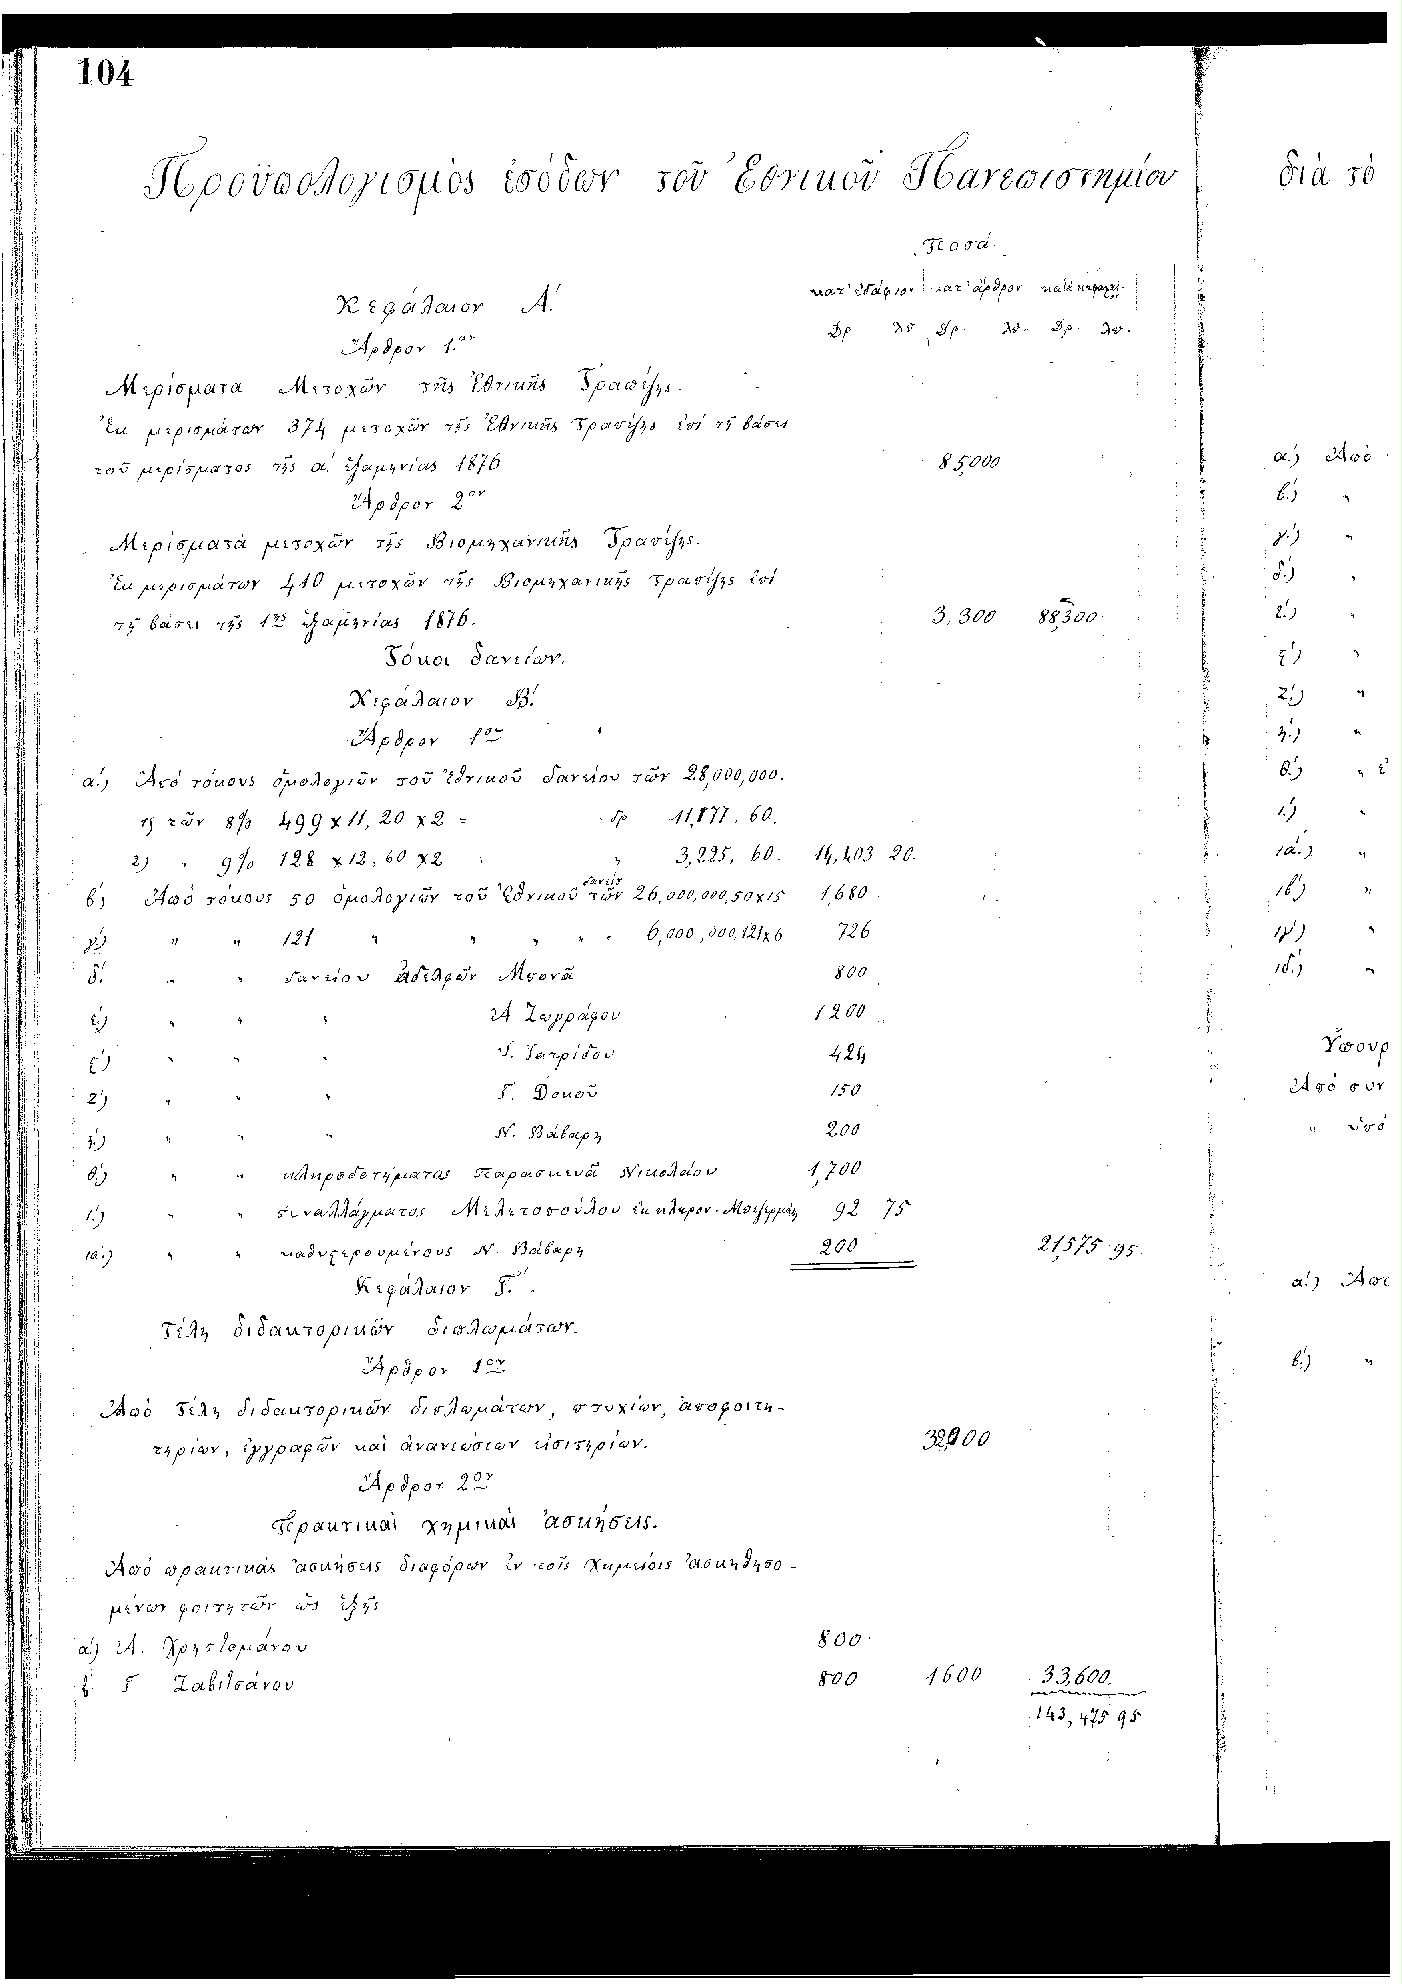 104
Προϋπολογισμὸς ἐσόδων τοῦ Ἐθνικοῦ Πανεπιστημίου
Ποσά
κατ' ἐδάφιον κατ' ἄρθρον κατὰ κεφάλ.
Δρ λπ Δρ. λπ. Δρ. λπ.
Κεφάλαιον Α΄.
Ἄρθρον 1.ον
Μερίσματα Μετοχῶν τῆς Ἐθνικῆς Τραπέζης.
Ἐκ μερισμάτων 374 μετοχῶν τῆς Ἐθνικῆς Τραπέζης ἐπὶ τῇ βάσει
τοῦ μερίσματος τῆς α΄. ἑξαμηνίας 1876 85,000
Ἄρθρον 2ον
Μερίσματα μετοχῶν τῆς Βιομηχανικῆς Τραπέζης.
Ἐκ μερισμάτων 410 μετοχῶν τῆς Βιομηχανικῆς Τραπέζης ἐπὶ
τῇ βάσει τῆς 1ης ἑξαμηνίας 1876. 3,300 88,300
Τόκοι δανείων.
Κεφάλαιον Β΄.
Ἄρθρον 1ον
α΄.) Ἀπὸ τόκους ὁμολογιῶν τοῦ Ἐθνικοῦ δανείου τῶν 28,000,000.
τῶν 8% 499 x 11,20 x 2 = δρ 11,177. 60.
2) " 9% 128 x 12,60 x 2 " 3,225, 60. 14,403 20.
β΄) Ἀπὸ τόκους 50 ὁμολογιῶν τοῦ Ἐθνικοῦ δανείου τῶν 26,000,000, 50x15 1,680
γ΄) " " 121 " " " " " 6,000,000, 121x6 726
δ΄. " " δανείου Ἀδελφῶν Μπονᾶ 800
ε΄) " " " Α Ζωγράφου 1200
ς΄) " " " Γ. Ἰατρίδου 424
ζ΄) " " " Γ. Δοκοῦ 150
η΄.) " " " Ν. Βάβαρη 200
θ΄.) " " κληροδοτήματος Παρασκευᾶ Νικολάου 1,700
ι΄.) " " συναλλάγματος Μελετοπούλου ἐκ κληρον. 92 75
ια΄.) " " καθυστερουμένους Ν. Βάβαρη 200 21,575 95.
Κεφάλαιον Γ΄.
Τέλη διδακτορικῶν διπλωμάτων.
Ἄρθρον 1ον
Ἀπὸ τέλη διδακτορικῶν διπλωμάτων, πτυχίων, ἀποφοιτη-
τηρίων, ἐγγραφῶν καὶ ἀνανεώσεων εἰσιτηρίων. 32,000
Ἄρθρον 2ον
Πρακτικαὶ χημικαὶ ἀσκήσεις.
Ἀπὸ πρακτικὰς ἀσκήσεις διαφόρων ἐν τοῖς Χημείοις ἀσκηθησο-
μένων φοιτητῶν ὡς ἑξῆς
α΄) Α. Χρηστομάνου 800.
β Γ Ζαβιτσάνου 800 1600 33,600.
143,475 95
διὰ τὸ
α΄.) Ἀπὸ
β΄.) "
γ΄.) "
δ΄.) "
ε΄.) "
ς΄) "
ζ΄.) "
η΄.) "
θ΄.) "
ι΄.) "
ια΄.) "
ιβ΄) "
ιγ΄) "
ιδ΄.) "
Ὑπουρ
Ἀπὸ συν
" ὑπὸ
α΄.) Ἀπὸ
β΄.) "